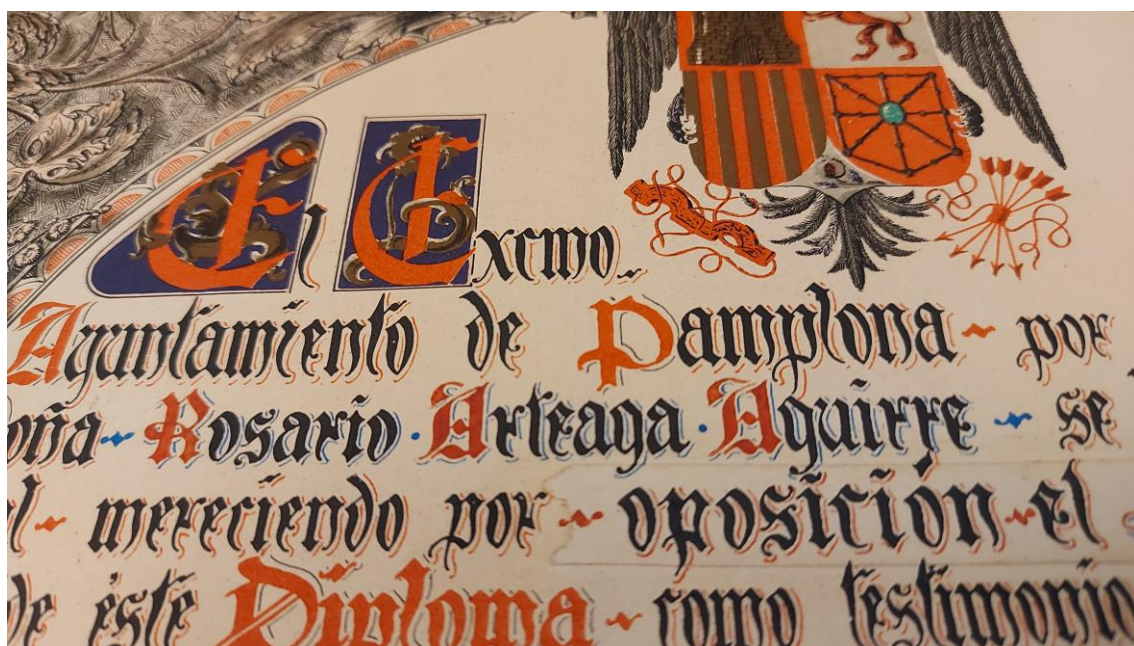 El Excmo.
Ayuntamiento de Pamplona - por
oña - Rosario · Arteaga · Aguirre - se
l - mereciendo por - oposicion - el
de éste Diploma - como testimonio